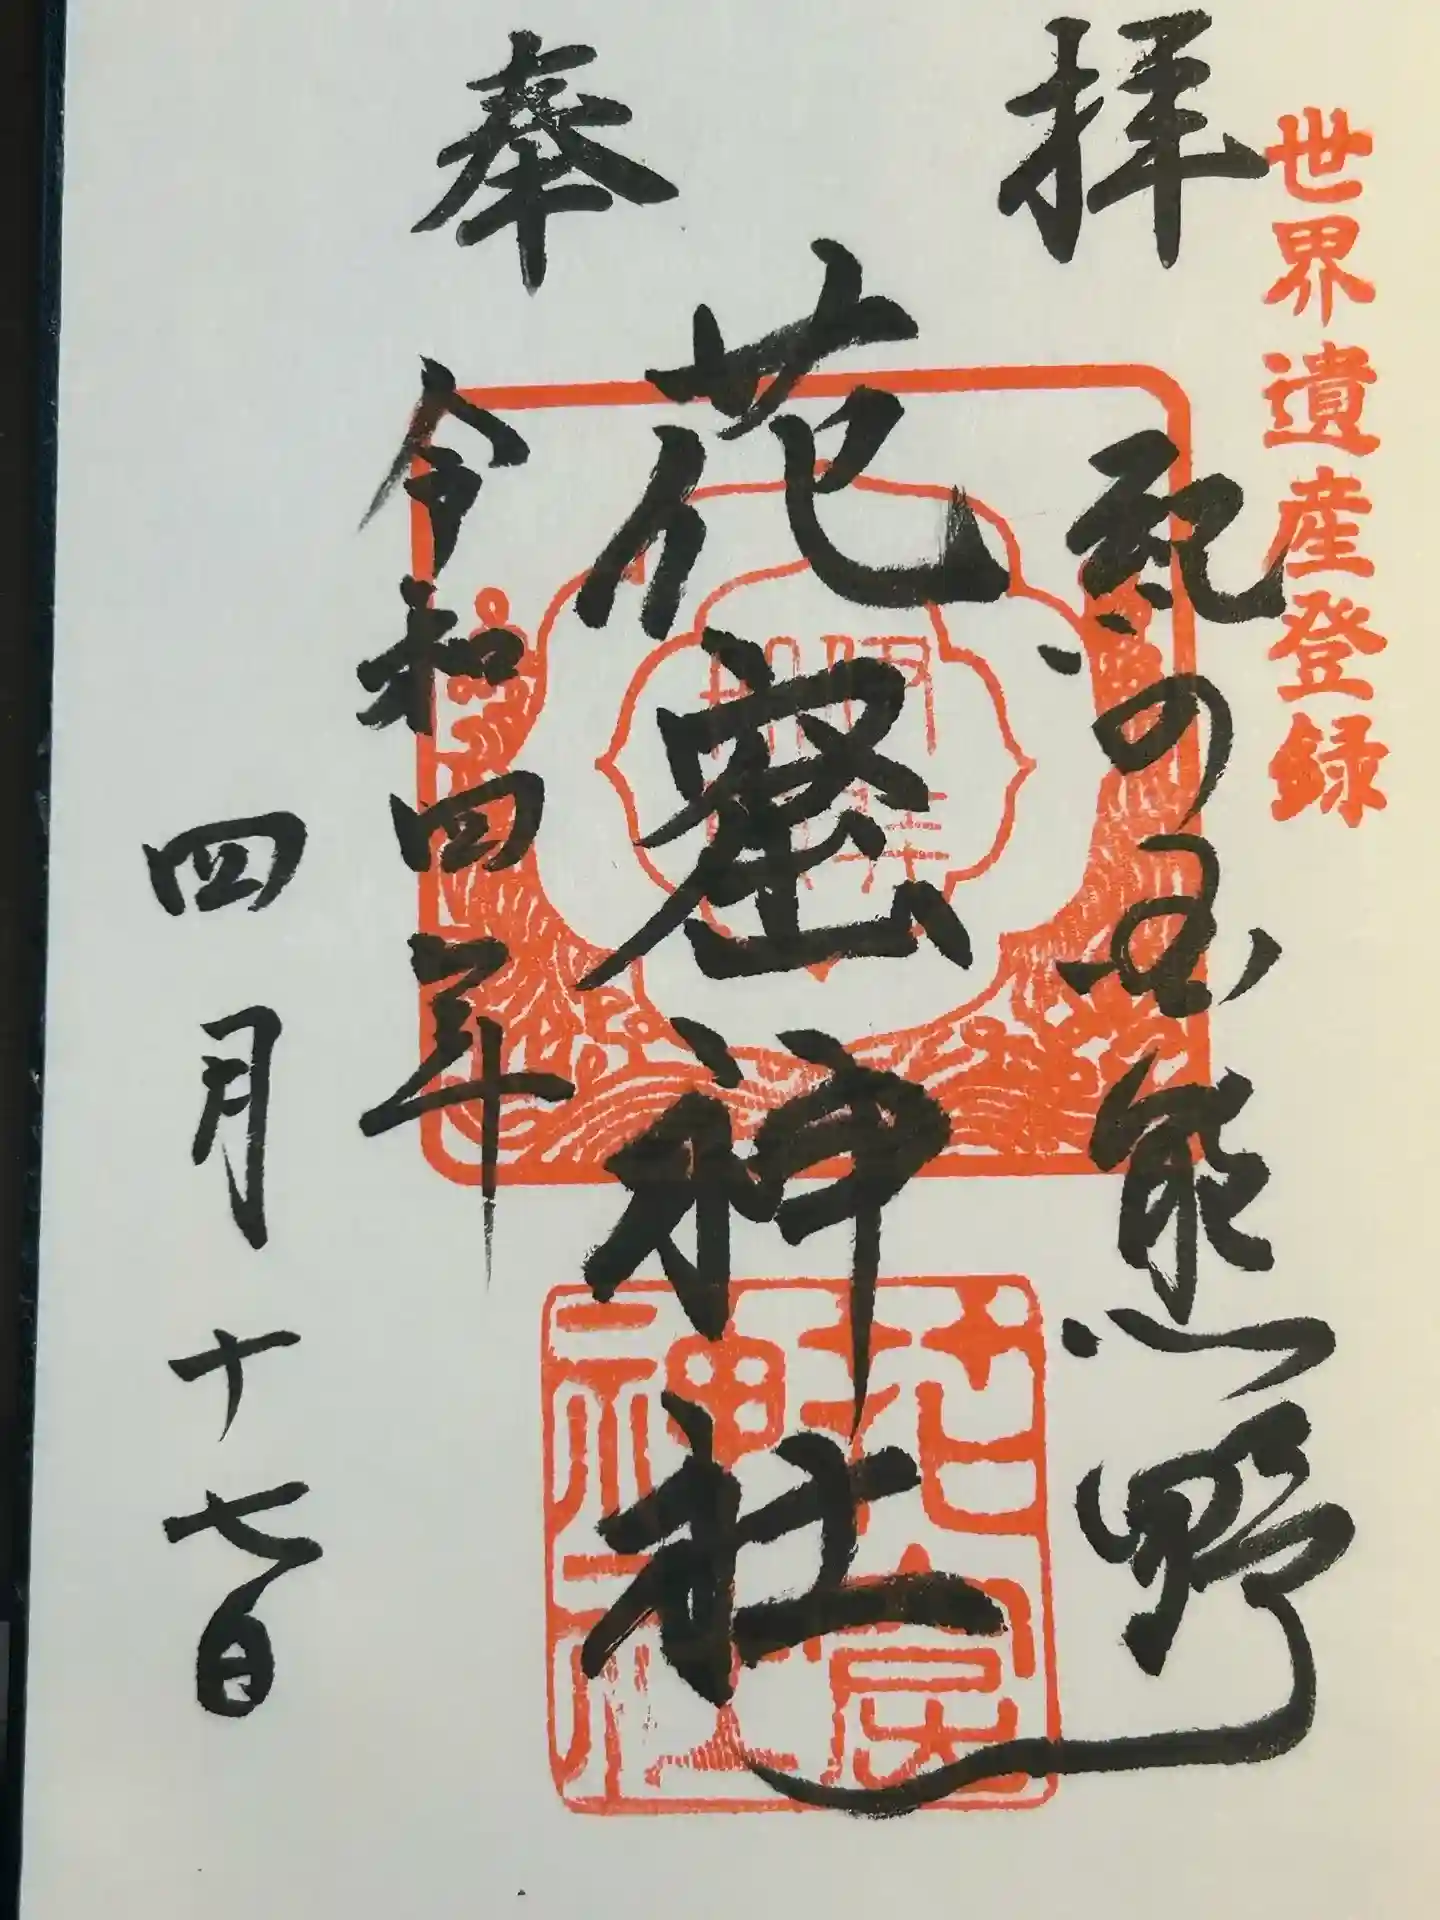 奉拝
世界遺産登録
紀の国熊野
花窟神社
令和四年
四月十七日